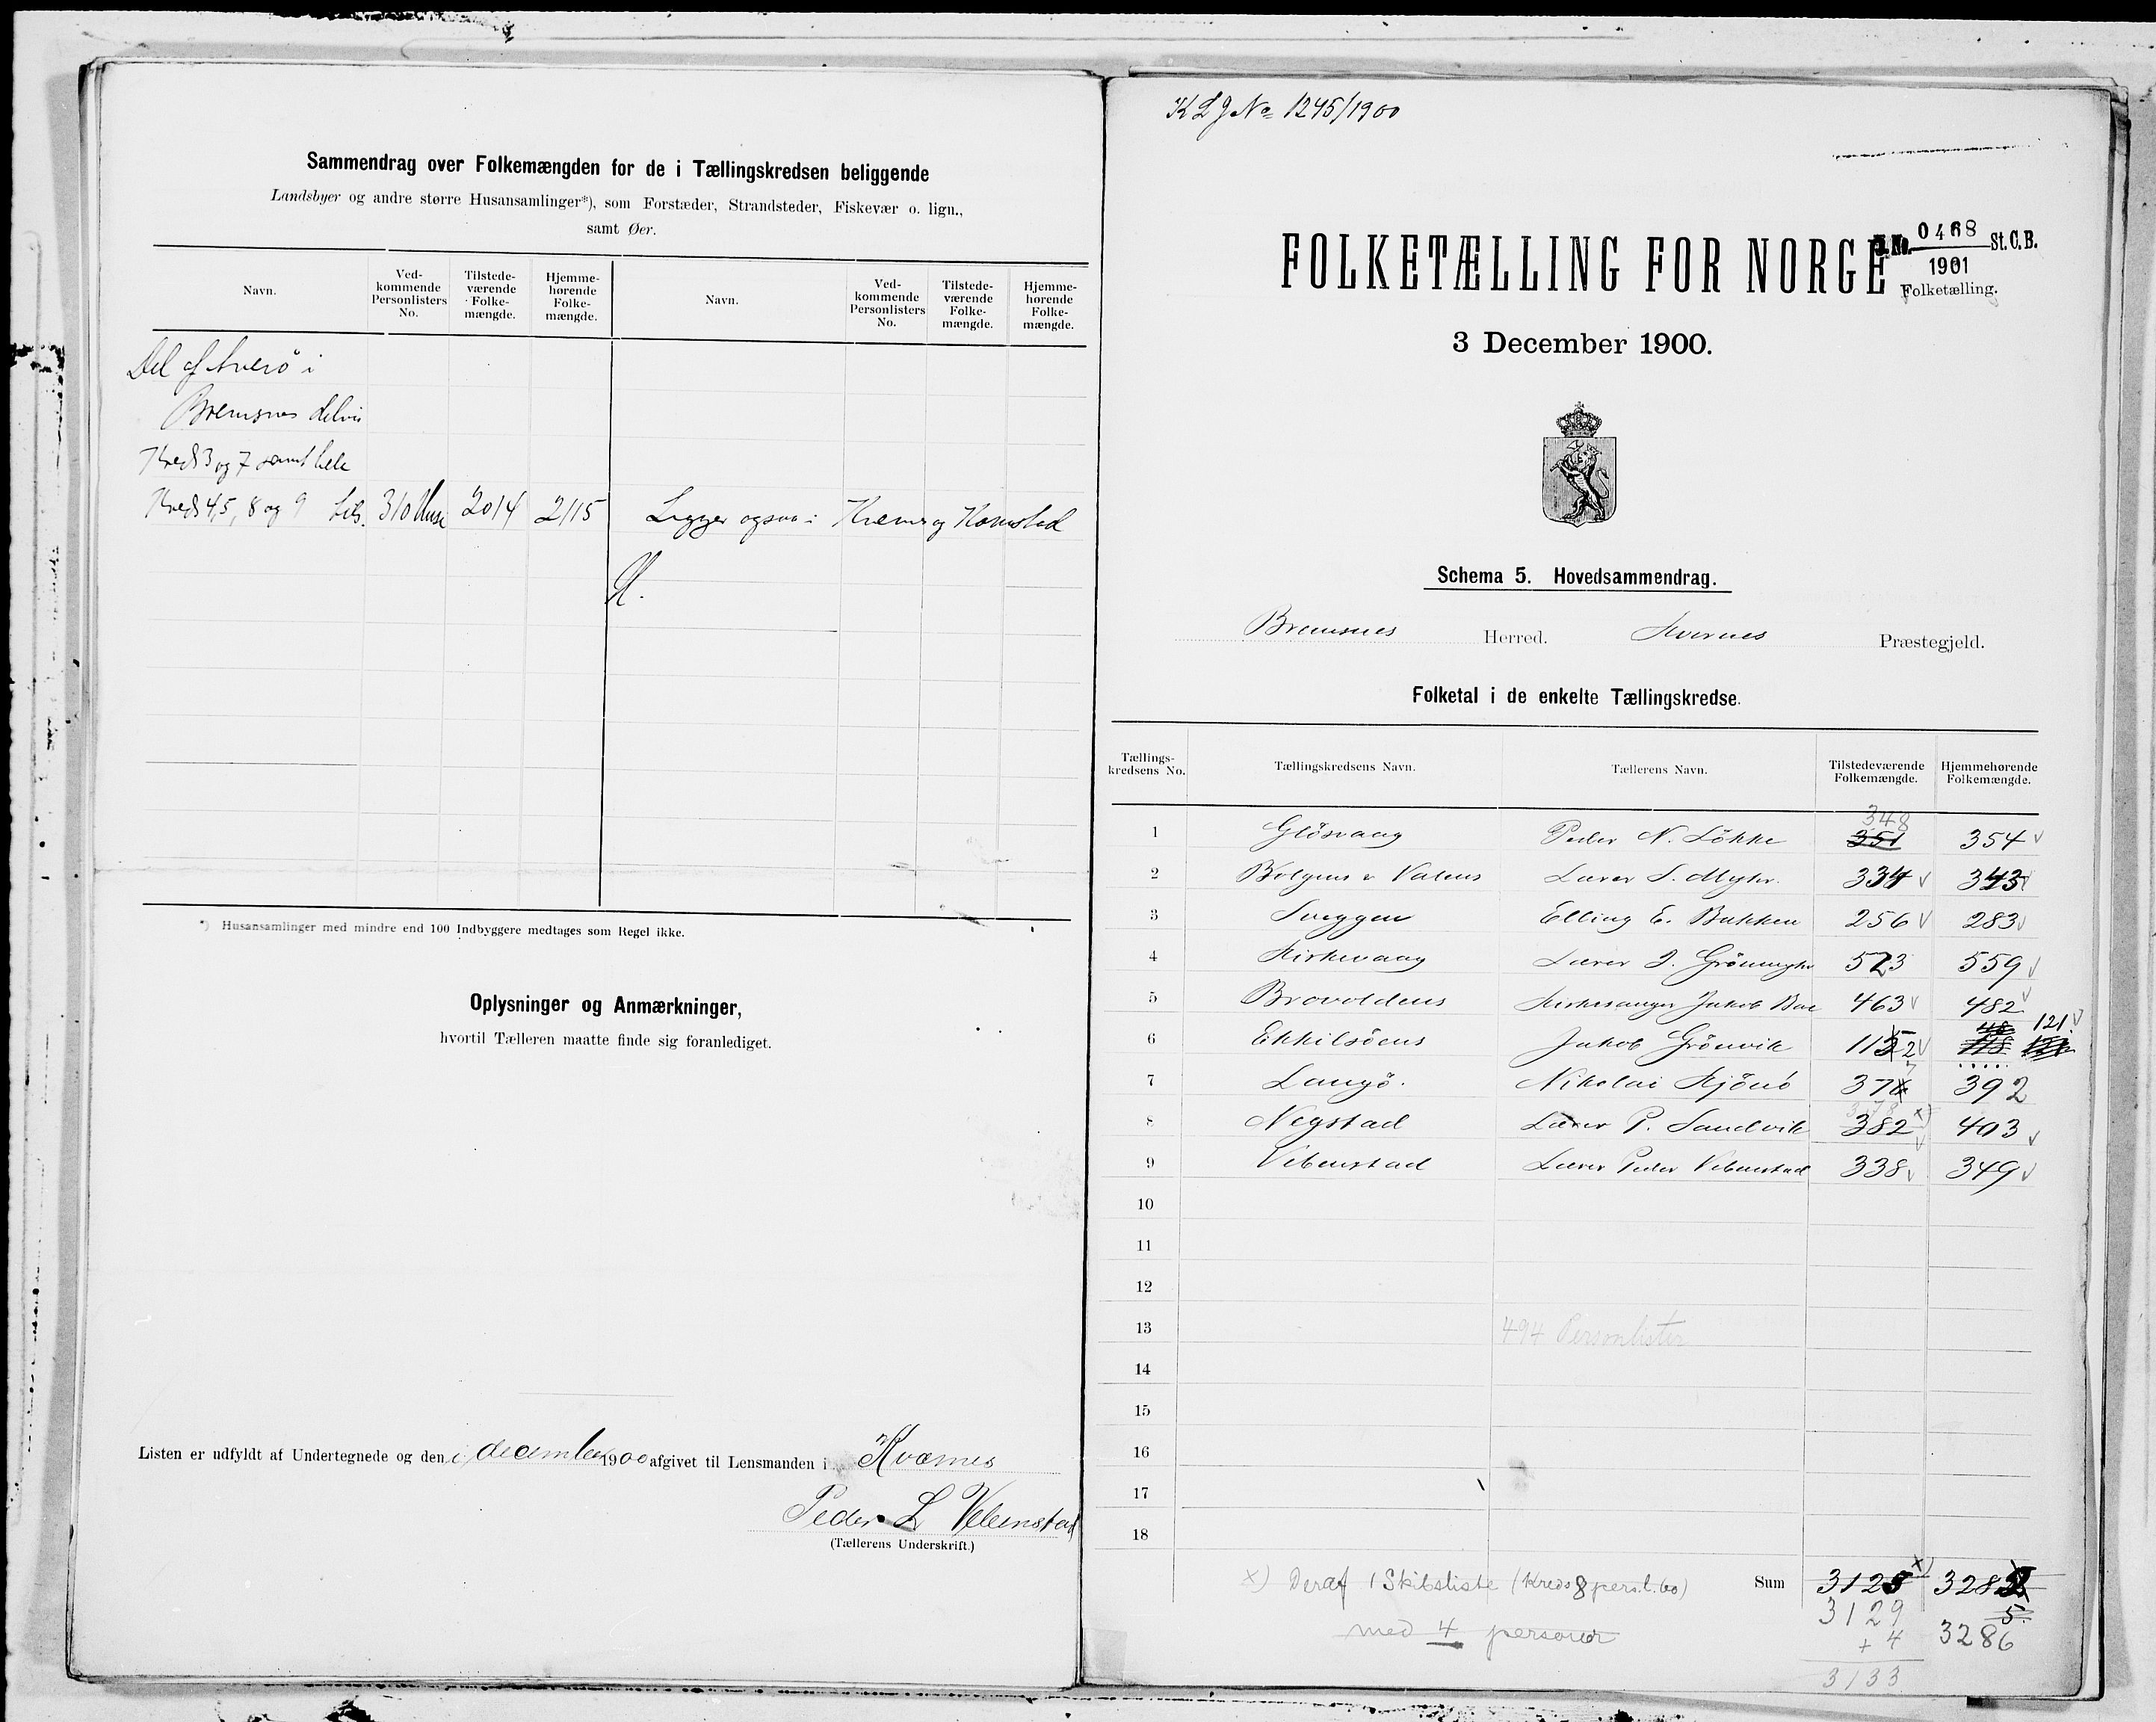 Sammendrag over Folkemængden for de i Tællingskredsen beliggende
Landsbyer og andre større Husansamlinger*), som Forstæder, Strandsteder, Fiskevær o. lign.,
samt Øer.
Navn. Ved-kommende Personlisters No. Tilstede-værende Folke-mængde. Hjemme-hørende Folke-mængde. Navn. Ved-kommende Personlisters No. Tilstede-værende Folke-mængde. Hjemme-hørende Folke-mængde.
Del af Averö i
Bremsnes delvis
Kreds 3 og 7 samt hele
Kreds 4, 5, 8 og 9 310 Huse 2014 2115 Ligger ogsaa i Kværnes og Kornstad
H.
*) Husansamlinger med mindre end 100 Indbyggere medtages som Regel ikke.
Oplysninger og Anmærkninger,
hvortil Tælleren maatte finde sig foranlediget.
Listen er udfyldt af Undertegnede og den i december 1900 afgivet til Lensmanden i Kværnes
Peder L Vebenstad
(Tællerens Underskrift.)
K L J No 1245/1900
FOLKETÆLLING FOR NORGE
J. No. 0468 St. C. B.
1901
Folketælling.
3 December 1900.
Schema 5. Hovedsammendrag.
Bremsnes Herred. Kvernes Præstegjeld.
Folketal i de enkelte Tællingskredse.
Tællings-kredsens No. Tællingskredsens Navn. Tællerens Navn. Tilstedeværende Folkemængde. Hjemmehørende Folkemængde.
348
1 Glösvaag Peder N. Lökke 351 354
2 Bolgens & Valens Lærer S. Myhr. 334 343
3 Sveggen Elling E. Bakken 256 283
4 Kirkevaag Lærer J. 523 559
5 Brovoldens Kirkesanger Jakob Bae 463 482
6 Ekkilsöens Jakob Grönvik 112 121
7 Langö. Nikolai 377 392
8 Negstad Lærer P. Sandvik 382 x) 403
9 Vebenstad Lærer Peder Vebenstad 338 349
10
11
12
13 494 Personlister
14
15
16
17
18
x) Deraf 1 Skibsliste (Kreds 8 pers.l. 60) Sum 3125 x) 3282
med 4 personer 3129 5
+ 4 3286
3133